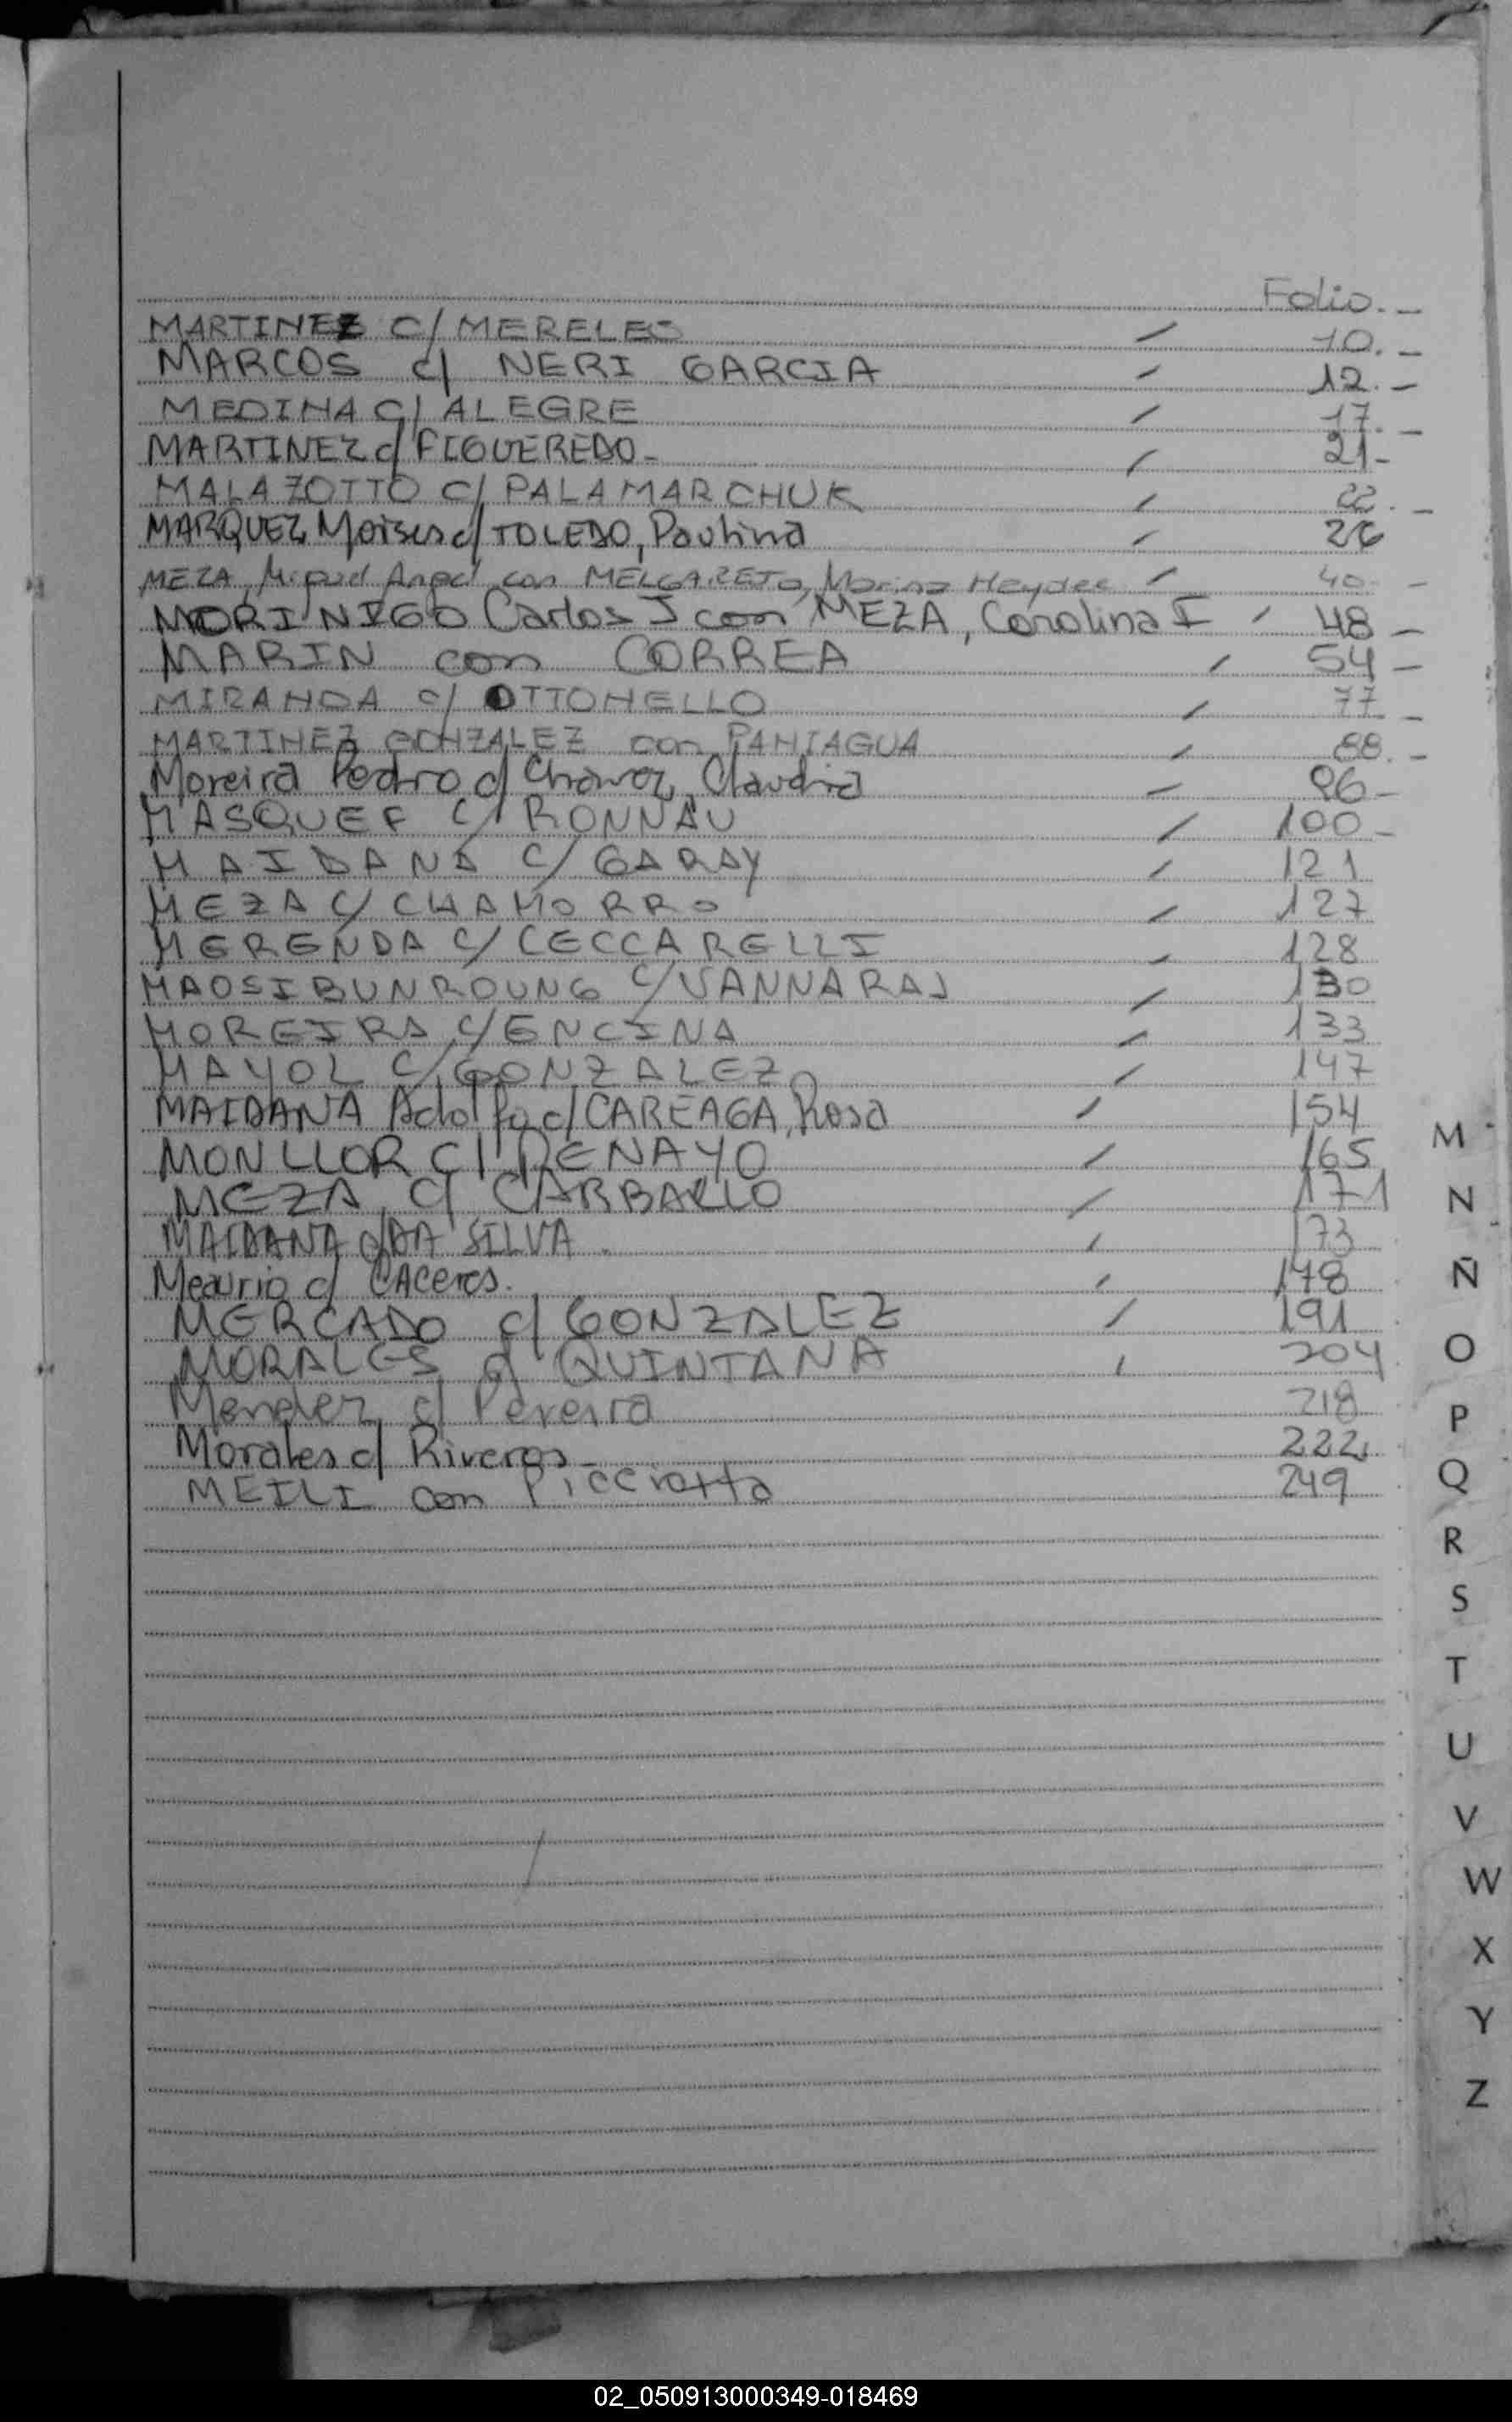 Folio. -
MARTINEZ C/ MERELES / 10. -
MARCOS c/ NERI GARCIA / 12. -
MEDINA C/ ALEGRE / 17. -
MARTINEZ c/ FIGUEREDO - / 21 -
MALAZOTTO C/ PALAMARCHUK / 22. -
MARQUEZ, Moises c/ TOLEDO, Paulina / 26
MEZA, Miguel Angel con MELGAREJO, Marina Heydee / 40 -
MORINIGO Carlos J con MEZA, Carolina I / 48 -
MARIN con CORREA / 54 -
MIRANDA c/ OTTONELLO / 77 -
MARTINEZ GONZALEZ con PANIAGUA / 88. -
Moreira Pedro c/ Chavez, Claudia / 96 -
MASQUEF C/ RONNAU / 100 -
MAIDANA C/ GARAY / 121
MEZA C/ CHAMORRO / 127
MERENDA C/ CECCARELLI / 128
MAOSIBUNROUNG C/ VANNARAJ / 130
MOREIRA C/ ENCINA / 133
MAYOL C/ GONZALEZ / 147
MAIDANA Adolfo c/ CAREAGA, Rosa / 154
MONLLOR C/ DENAYO / 165
MEZA c/ CARBALLO / 171
MAIDANA c/ DA SILVA. / 173
Meaurio c/ CACeres. / 178
MERCADO c/ GONZALEZ / 191
MORALES c/ QUINTANA / 204
Mendez c/ Pereira 218
Morales c/ Riveros 222
MEILI con 249
M
N
Ñ
O
P
Q
R
S
T
U
V
W
X
Y
Z
02_050913000349-018469